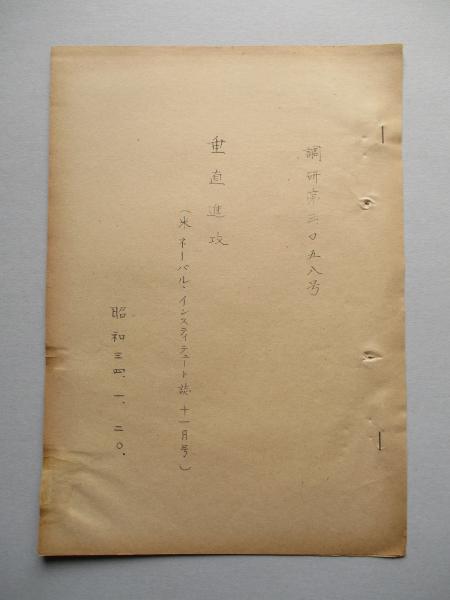 調研第三〇五八号
垂直進攻
(米ネーバル・インスティテュート誌 十一月号)
昭和三四、一、二〇、